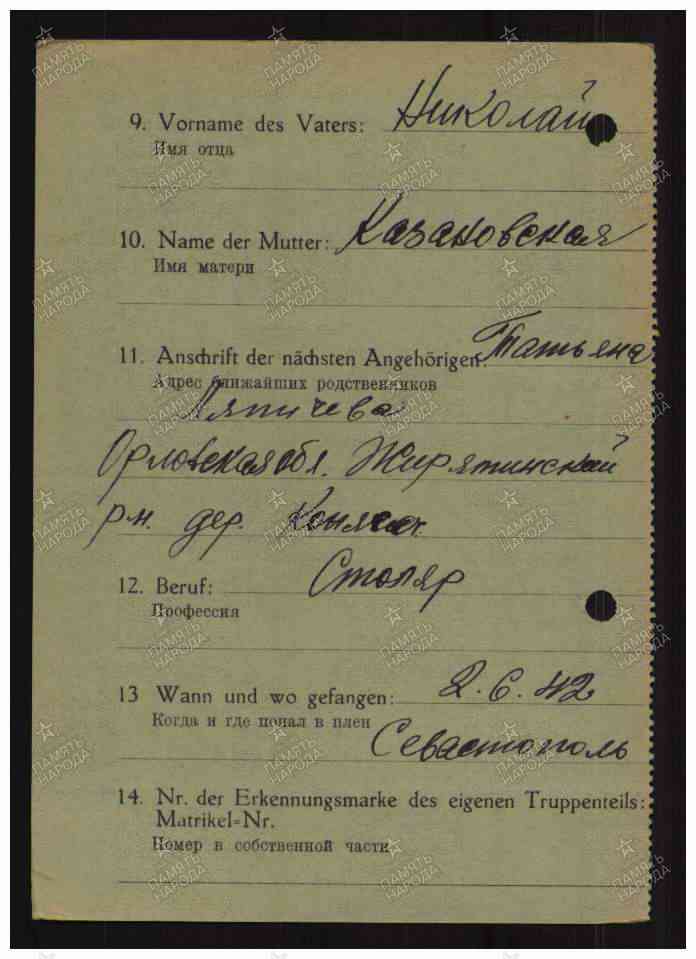 9. Vorname des Vaters: Николай
Имя отца
10. Name der Mutter: Казановская
Имя матери
11. Anschrift der nächsten Angehörigen: Татьяна
Адрес ближайших родственников
Ляпичева
Орловская обл. Жирятинский
рн. дер.
12. Beruf: Столяр
Профессия
13 Wann und wo gefangen: 2.6.42
Когда и где попал в плен
Севастополь
14. Nr. der Erkennungsmarke des eigenen Truppenteils:
Matrikel=Nr.
Номер в собственной части
ПАМЯТЬ
НАРОДА